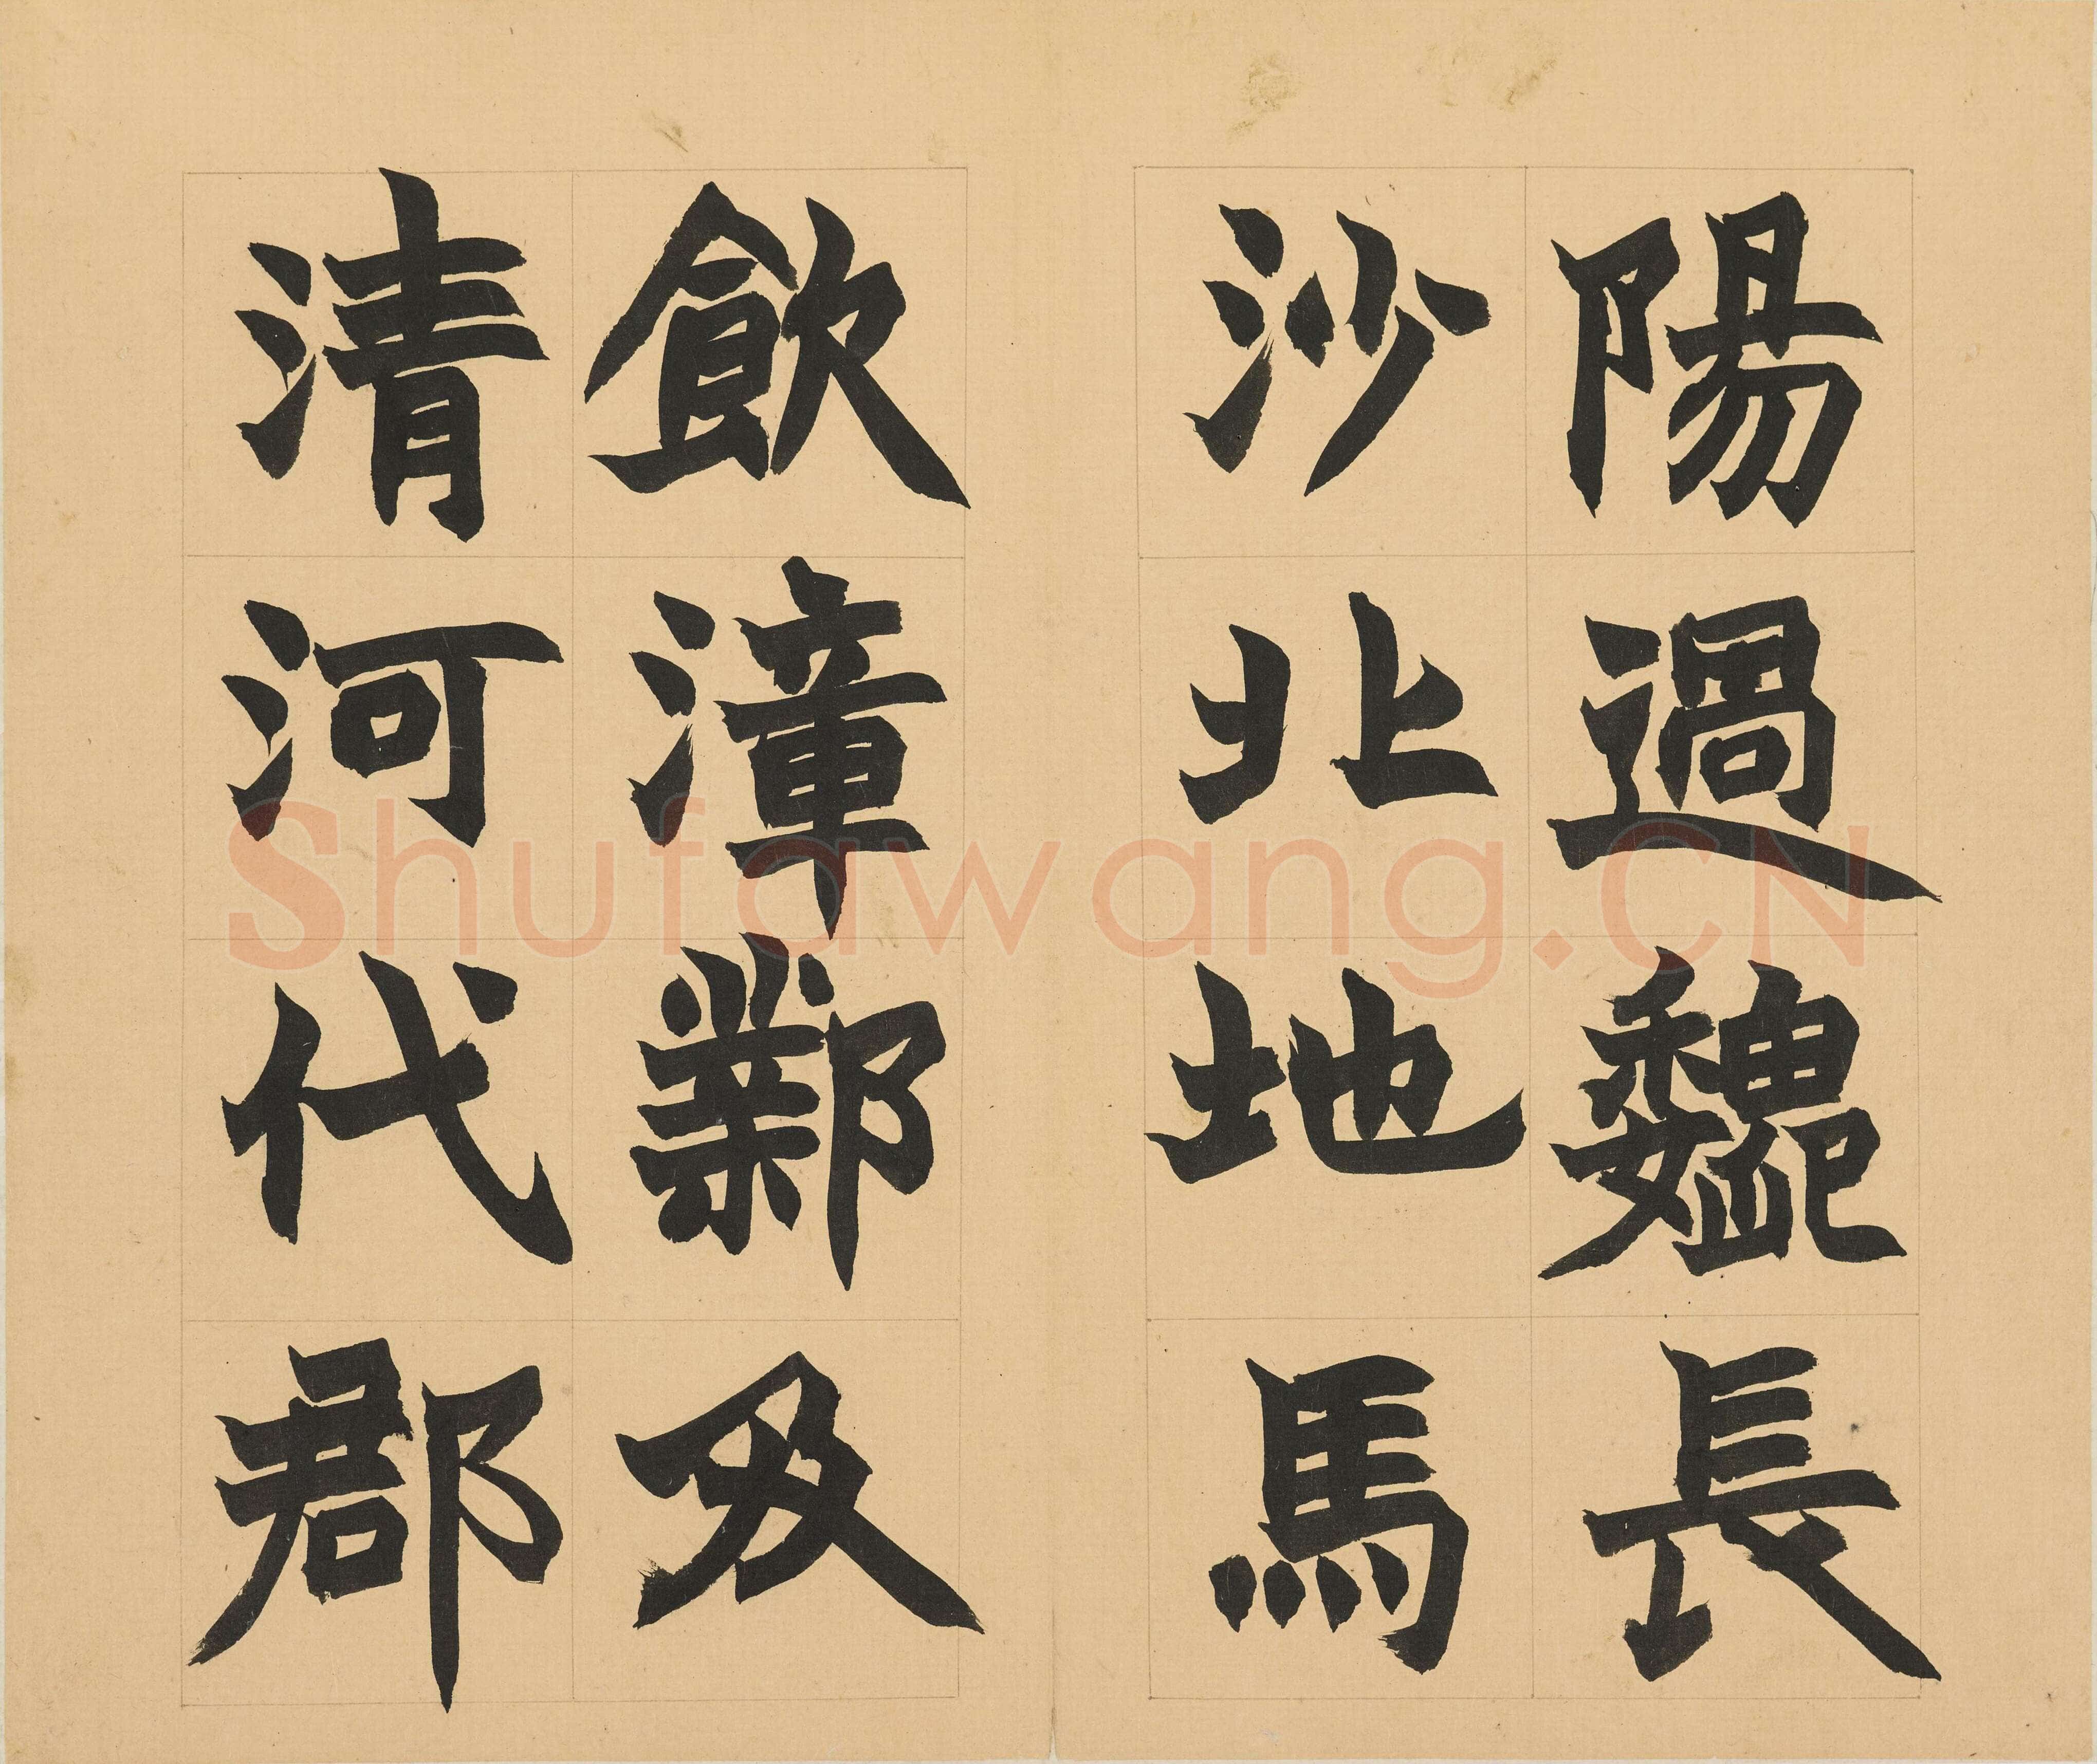 陽過魏長
沙北地馬
飲漳鄴及
清河代郡
Shufawang.CN